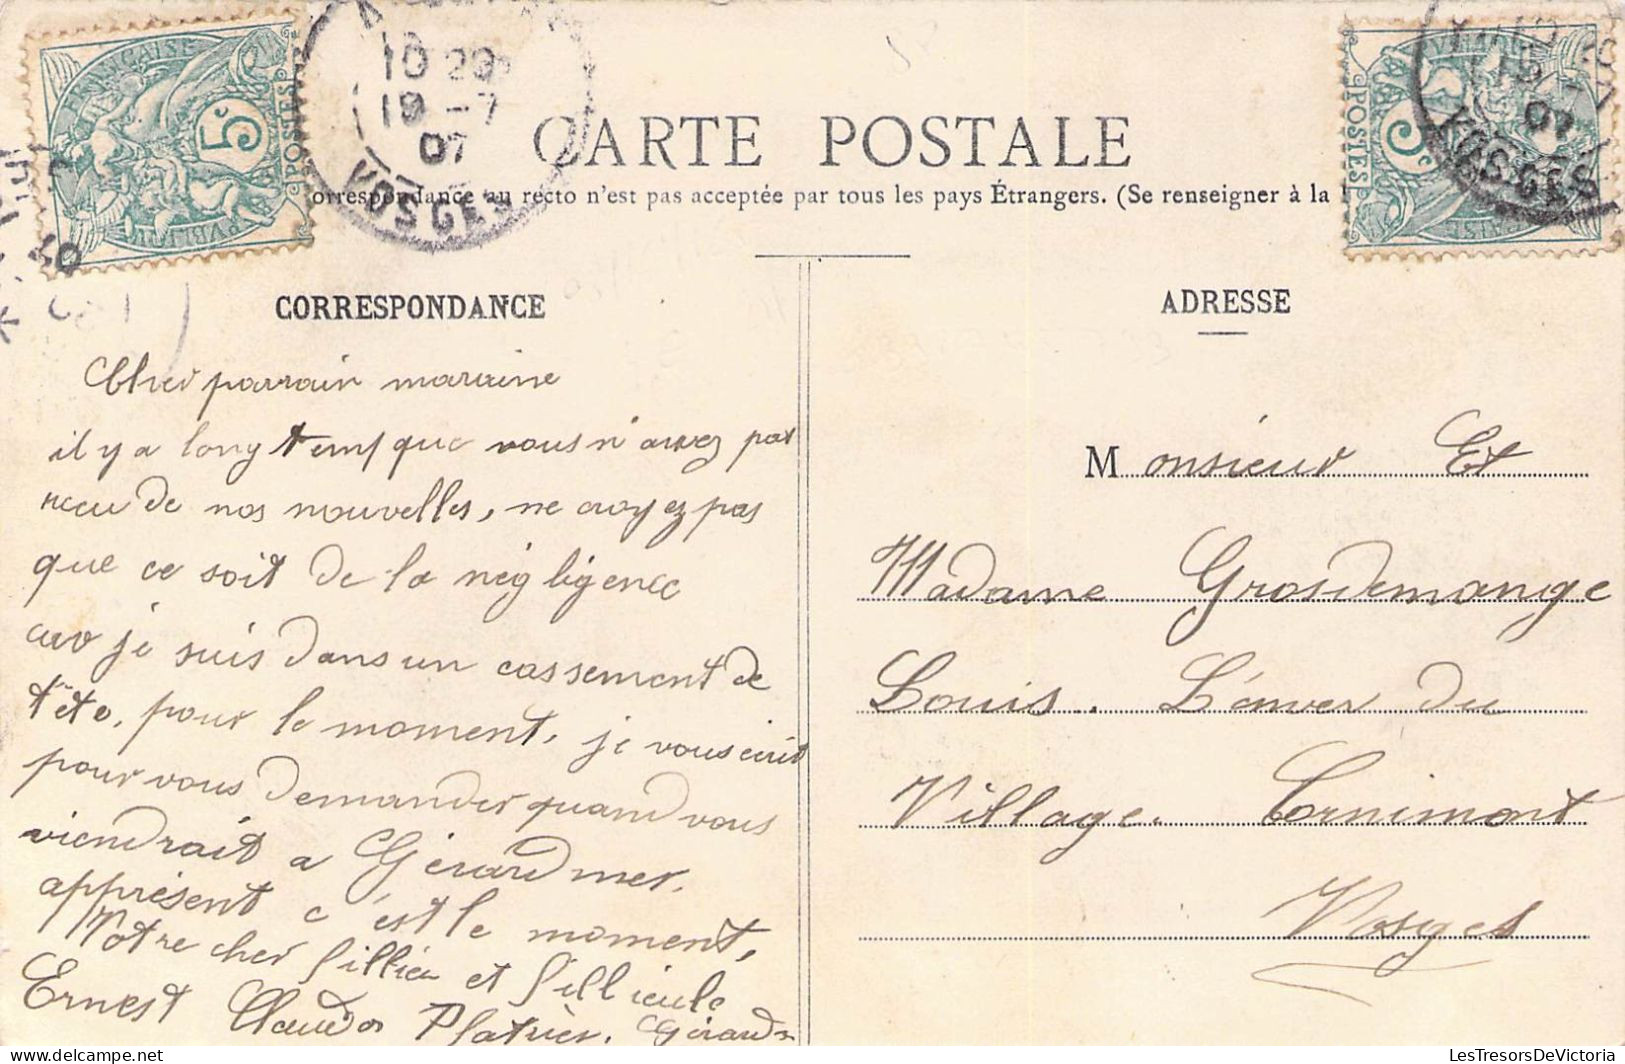 RÉPUBLIQUE FRANÇAISE
5c
POSTES
10 20
19 - 7
07
VOSGES
POSTES
07
VOSGES
CARTE POSTALE
orrespondance au recto n'est pas acceptée par tous les pays Étrangers. (Se renseigner à la
CORRESPONDANCE
Cher parrain marraine
il y a long temps que vous n'avez pas
recu de nos nouvelles, ne croyez pas
que ce soit de la négligence
car je suis dans un cassement de
tête, pour le moment, je vous écrit
pour vous demander quand vous
viendrait a Gérardmer.
apprésent c'est le moment,
Votre cher fillieu et fillieule
Ernest Claudon Platrier. Gérard
ADRESSE
Monsieur Et
Madame Grosdemange
Louis.. L'enver du
Village. Cornimont
Vosges
LesTresorsDeVictoria